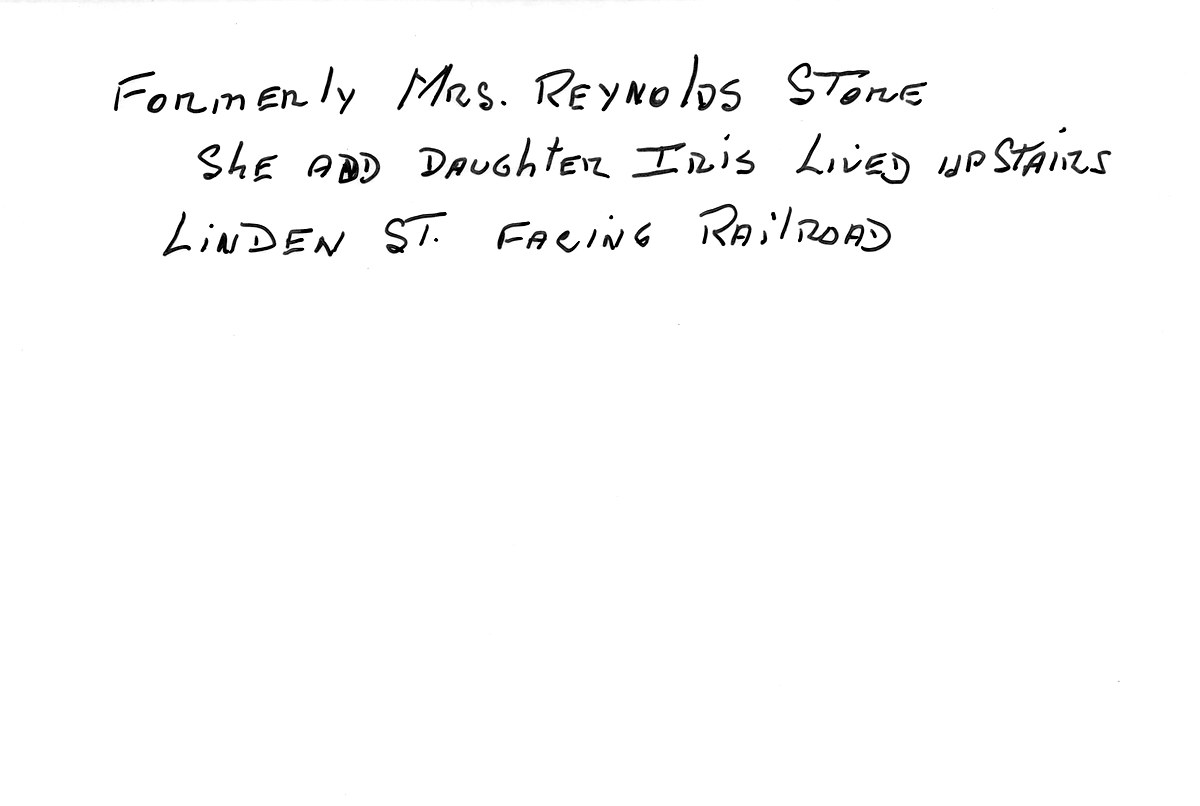 Formerly Mrs. Reynolds Store
She add Daughter Iris Lived upstairs
Linden St. Facing Railroad